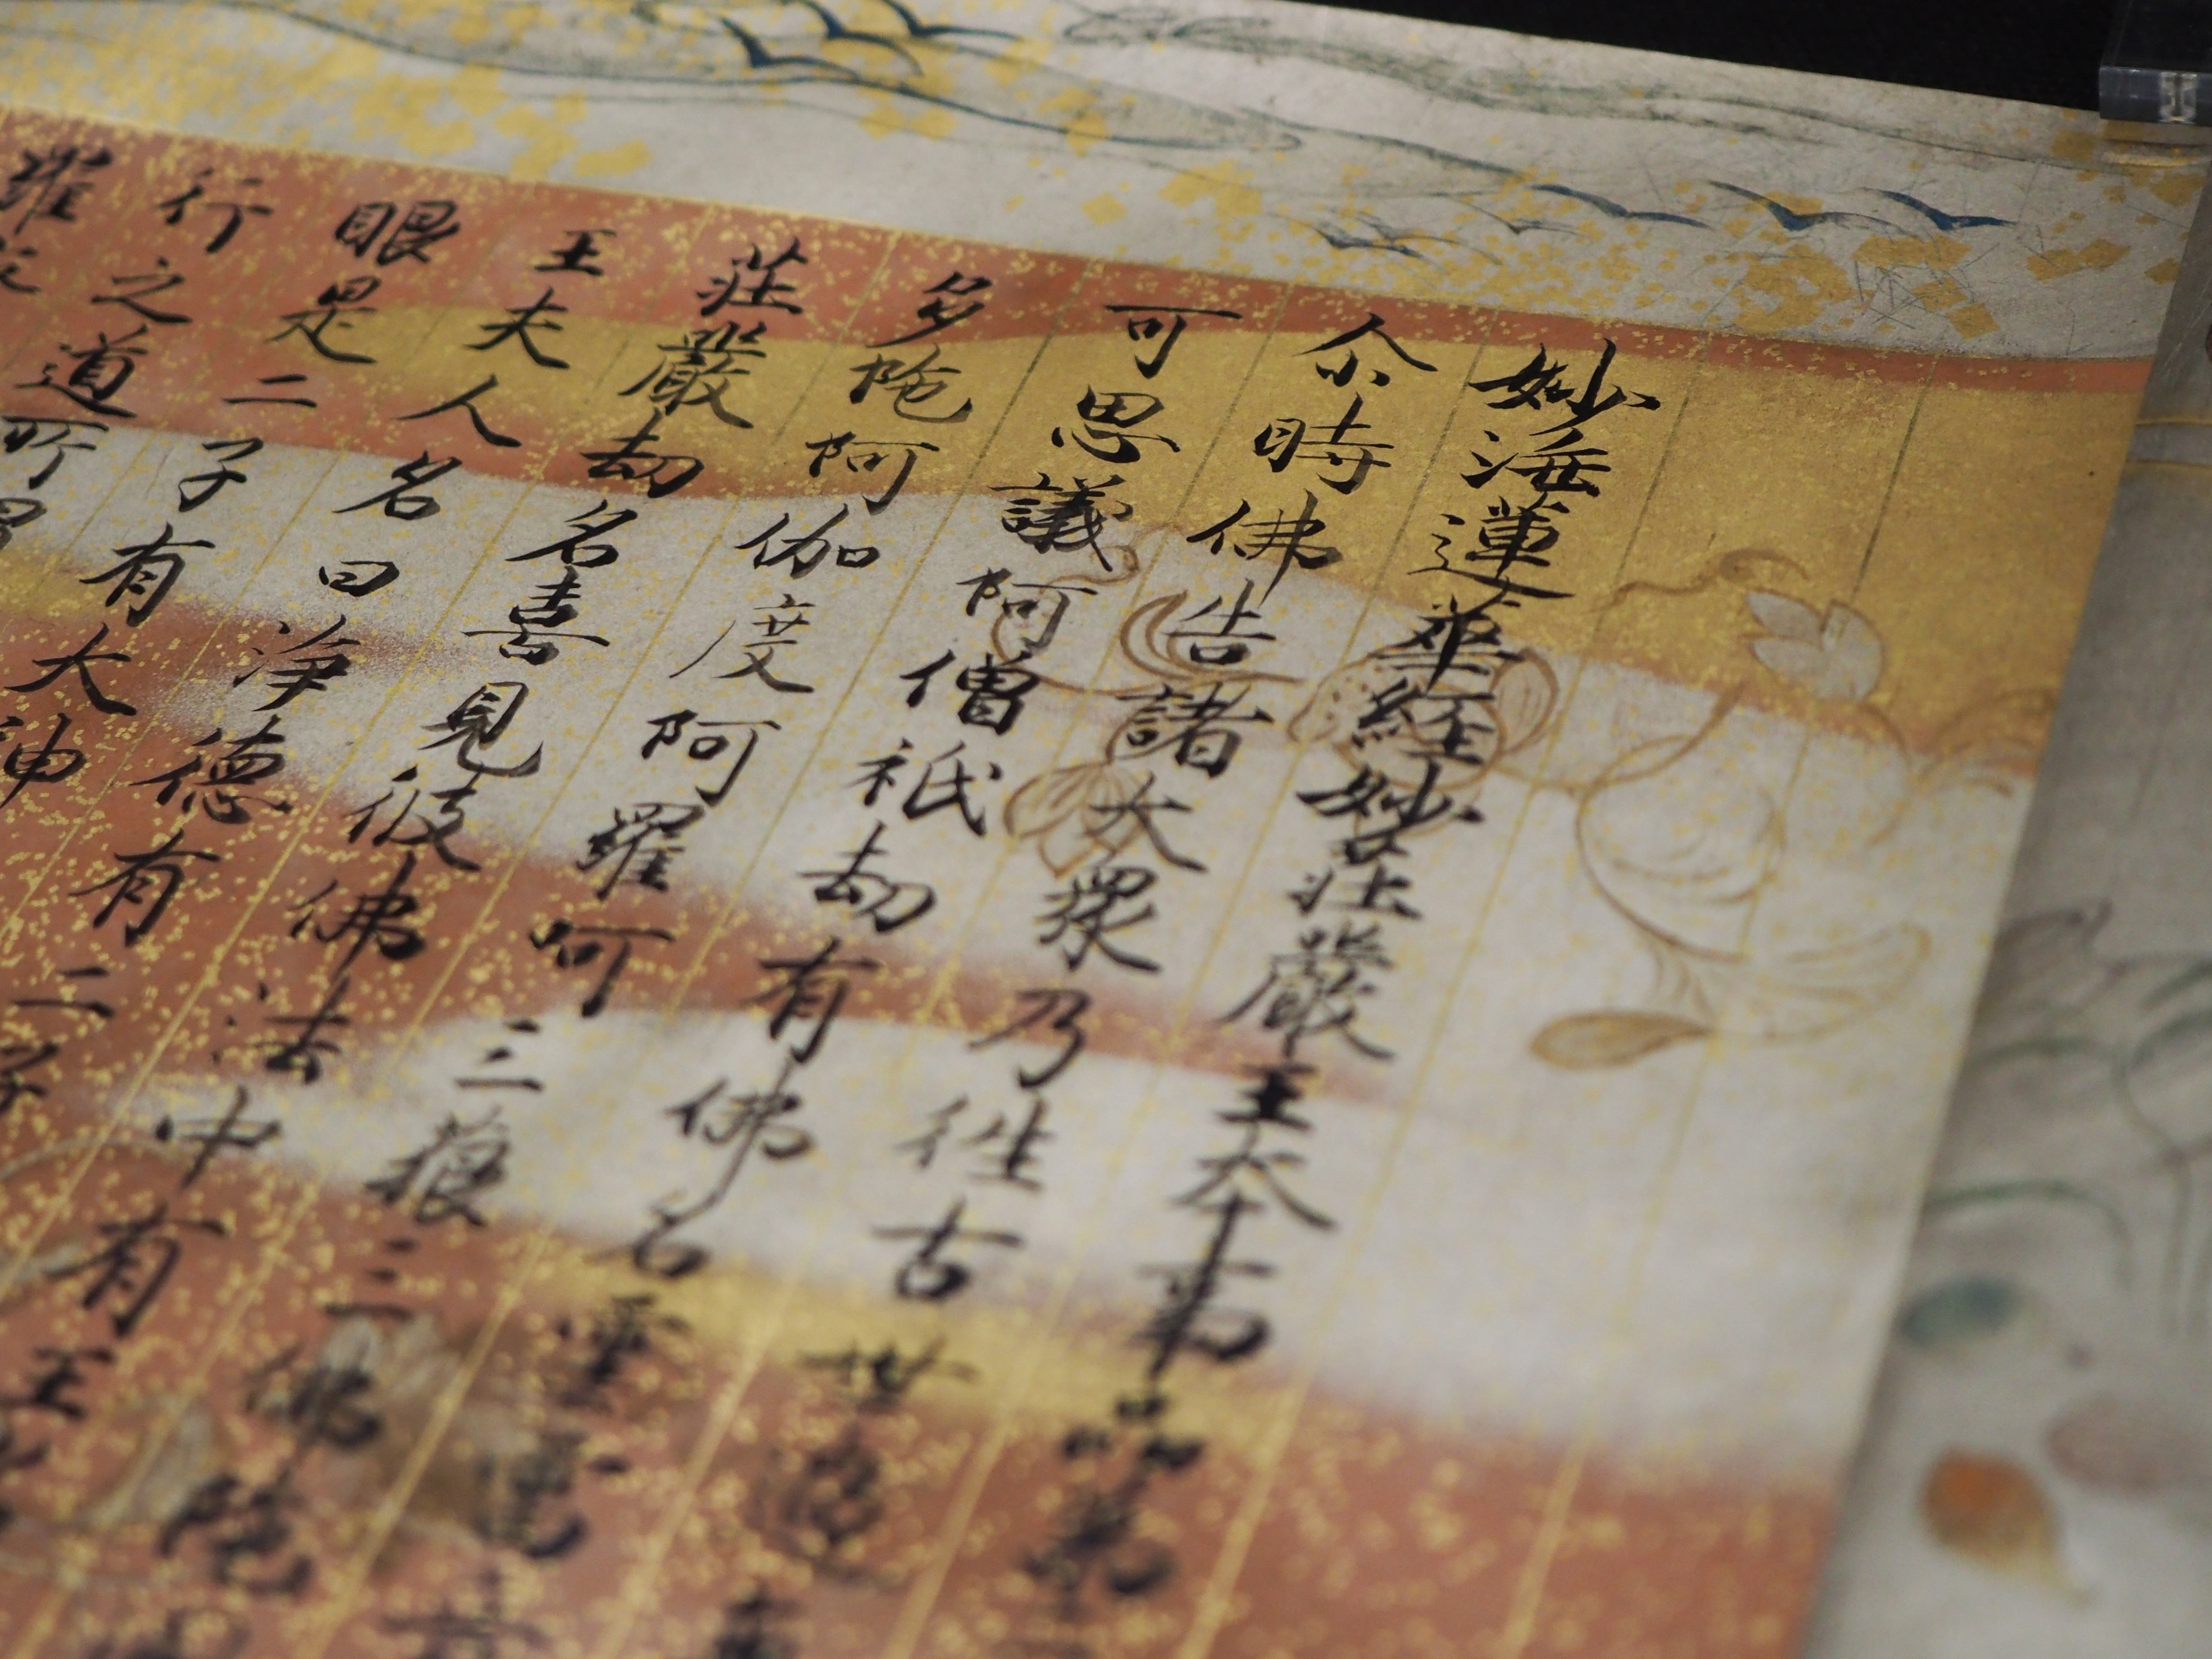 妙法蓮華經妙莊嚴王本事品第
尒時佛告諸大衆乃徃古世過
可思議阿僧祇劫有佛名雲雷
多陁阿伽度阿羅呵三藐三佛陁
莊嚴劫名喜見彼佛法中有王
王夫人名曰淨德有二子
眼是二子有大神
行之道所
羅